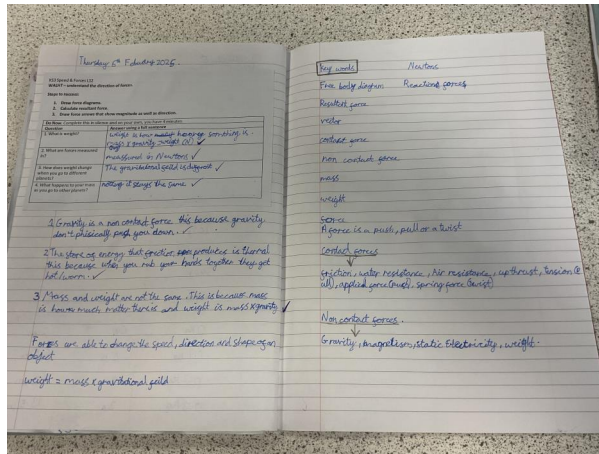 Thursday 6th February 2025.
KS3 Speed & Forces L12
WEIGHT – understand the direction of forces
Steps to success:
1. Draw force diagrams.
2. Calculate resultant force.
3. Draw force arrows that show magnitude as well as direction.
Do Now: Complete this in silence and on your own, you have 4 minutes
Question
Answer using a full sentence
1. What is weight?
weight is how something is.
mass x gravity = weight (N) ✓
2. What are forces measured in?
meassured in Newtons ✓
3. How does weight change when you go to different planets?
The gravitational feild is different ✓
4. What happens to your mass as you go to other planets?
nothing it stays the same ✓
1 Gravity is a non contact force this because gravity.
don't phisically push you down. ✓
2 The store of energy that friction produces is thermal
this because when you rub your hands together they get
hot/warm. ✓
3 Mass and weight are not the same. This is because mass
is how much matter there is and weight is mass x gravity ✓
Forces are able to change the speed, direction and shape of an
object
weight = mass x gravitational feild
Key words
Newtons
Free body diagram
Reaction forces
Resultant force
vector
contact force
non contact force
mass
weight
Force
A force is a push, pull or a twist
Contact forces
friction, water resistance, Air resistance, upthrust, tension
applied force (push), spring force (twist)
Non contact forces.
Gravity, magnetism, static Electricity, weight.